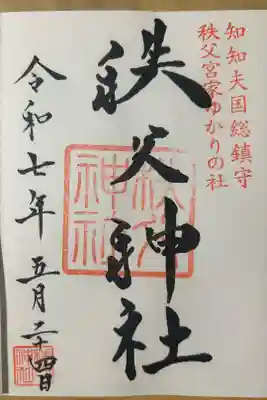 知知夫国総鎮守
秩父宮家ゆかりの社
秩父神社
秩父
神社
令和七年五月二十四日